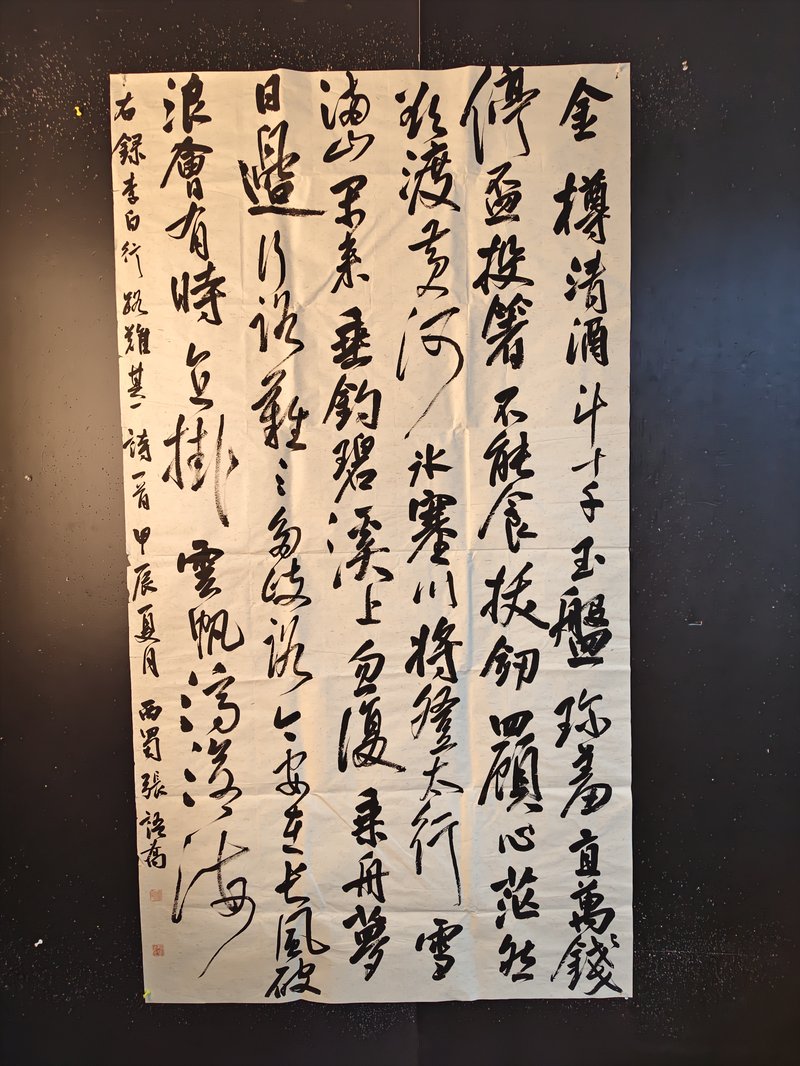 金樽清酒斗十千玉盤珎羞直萬錢
停盃投箸不能食拔釰四顧心茫然
欲渡黃河冰塞川將登太行雪
滿山閒來垂釣碧溪上忽復乘舟夢
日邊行路難〻多歧路今安在長風破
浪會有時直掛雲帆濟滄海
右錄李白行路難其一詩一首甲辰夏月西蜀張語喬